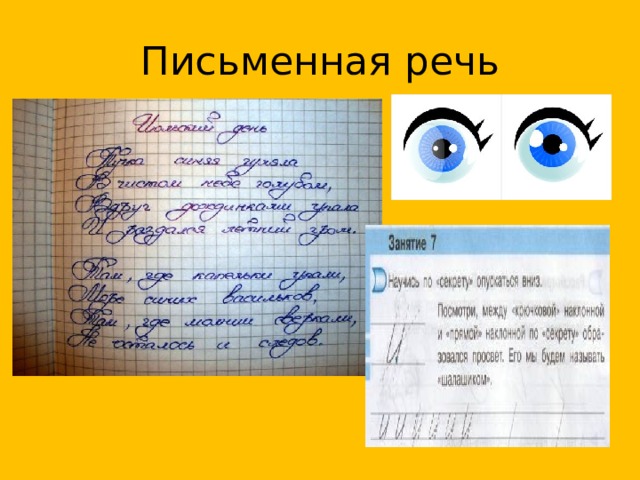 Письменная речь
Июльский день
Тучка синяя гуляла
В чистом небе голубом,
Вдруг дождинками упала
И раздался летний гром.
Там, где капельки упали,
Море синих васильков,
Там, где молнии сверкали,
Не осталось и следов.
Занятие 7
Научись по «секрету» опускаться вниз.
Посмотри, между «крючковой» наклонной
и «прямой» наклонной по «секрету» обра-
зовался просвет. Его мы будем называть
«шалашиком».
и
и и и и и